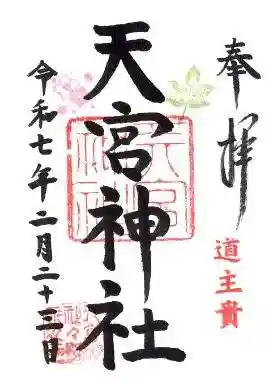 奉拝
道主貴
天宮神社
令和七年二月二十三日